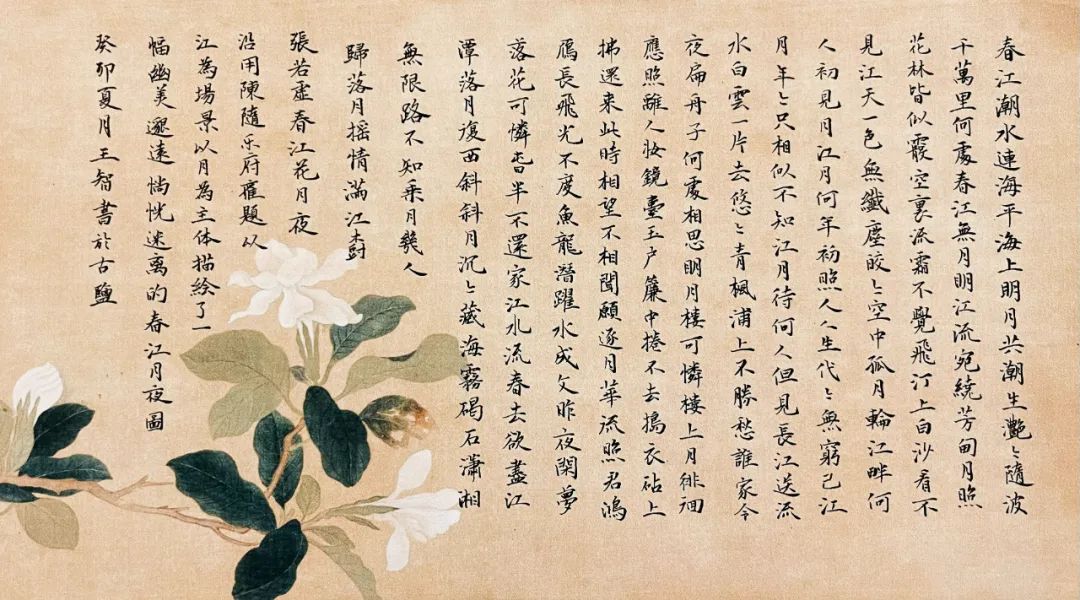 春江潮水連海平海上明月共潮生灧〻隨波
千萬里何處春江無月明江流宛繞芳甸月照
花林皆似霰空裏流霜不覺飛汀上白沙看不
見江天一色無纖塵皎〻空中孤月輪江畔何
人初見月江月何年初照人人生代〻無窮已江
月年〻只相似不知江月待何人但見長江送流
水白雲一片去悠〻青楓浦上不勝愁誰家今
夜扁舟子何處相思明月樓可憐樓上月徘徊
應照離人妝鏡臺玉户簾中捲不去搗衣砧上
拂還来此時相望不相聞願逐月華流照君鴻
鴈長飛光不度魚龍潛躍水成文昨夜閑夢
落花可憐春半不還家江水流春去欲盡江
潭落月復西斜斜月沉〻藏海霧碣石瀟湘
無限路不知乘月幾人
歸落月摇情滿江樹
張若虚春江花月夜
沿用陳隨乐府舊題以
江為場景以月為主体描绘了一
幅幽美邈遠惝恍迷离的春江月夜圖
癸卯夏月王智書於古鹽